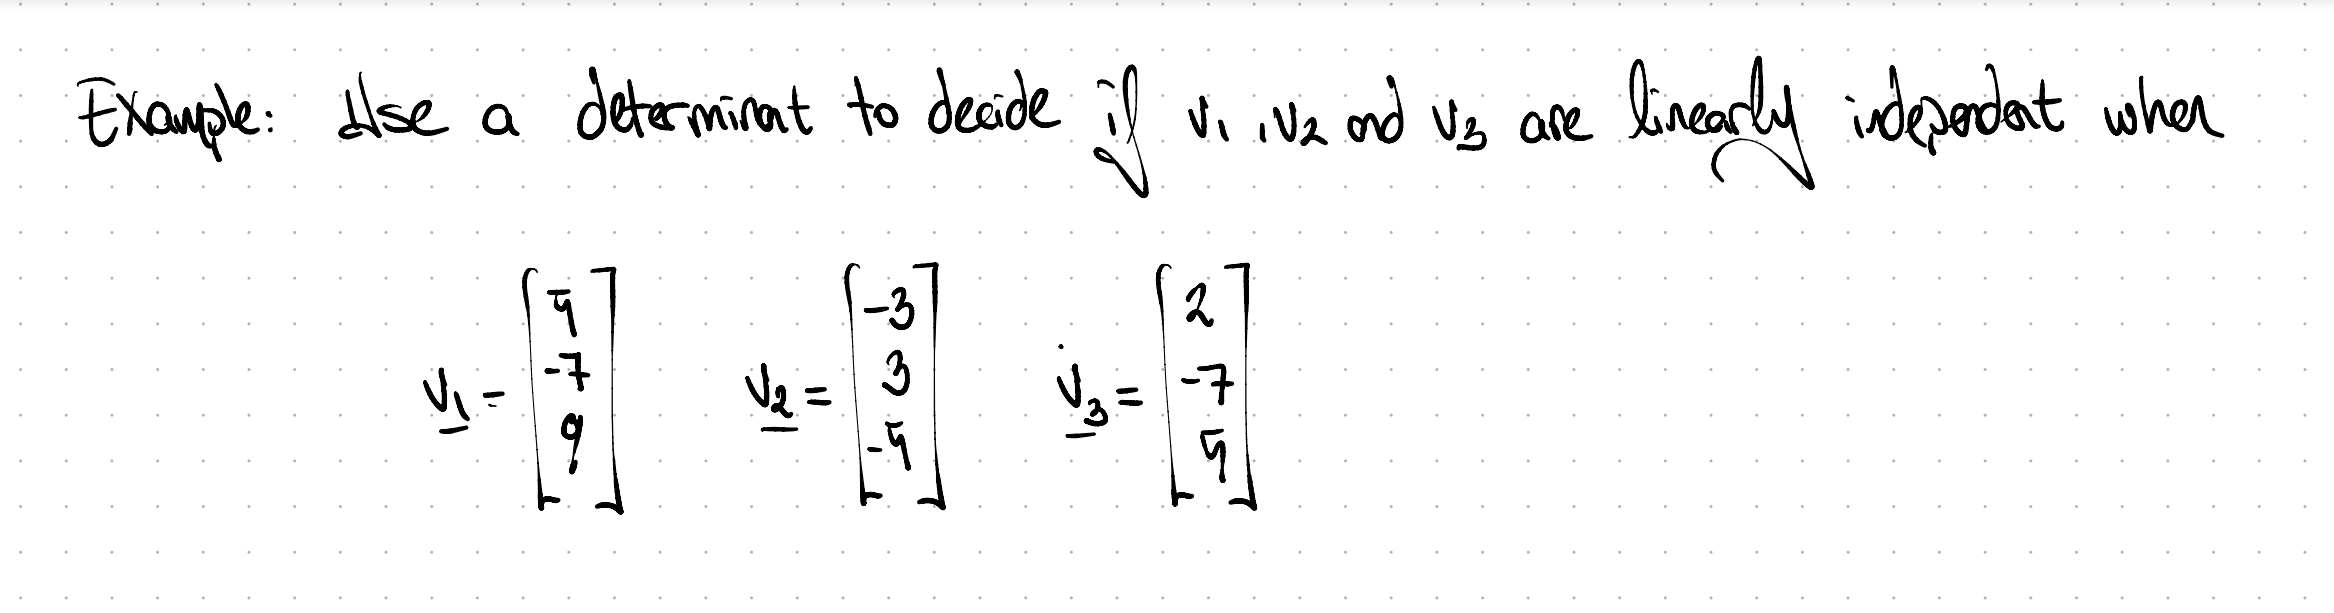 Example: Use a determinant to decide if v₁, v₂ and v₃ are linearly independent when
v₁ = [5 -7 9] v₂ = [-3 3 -5] v₃ = [2 -7 5]